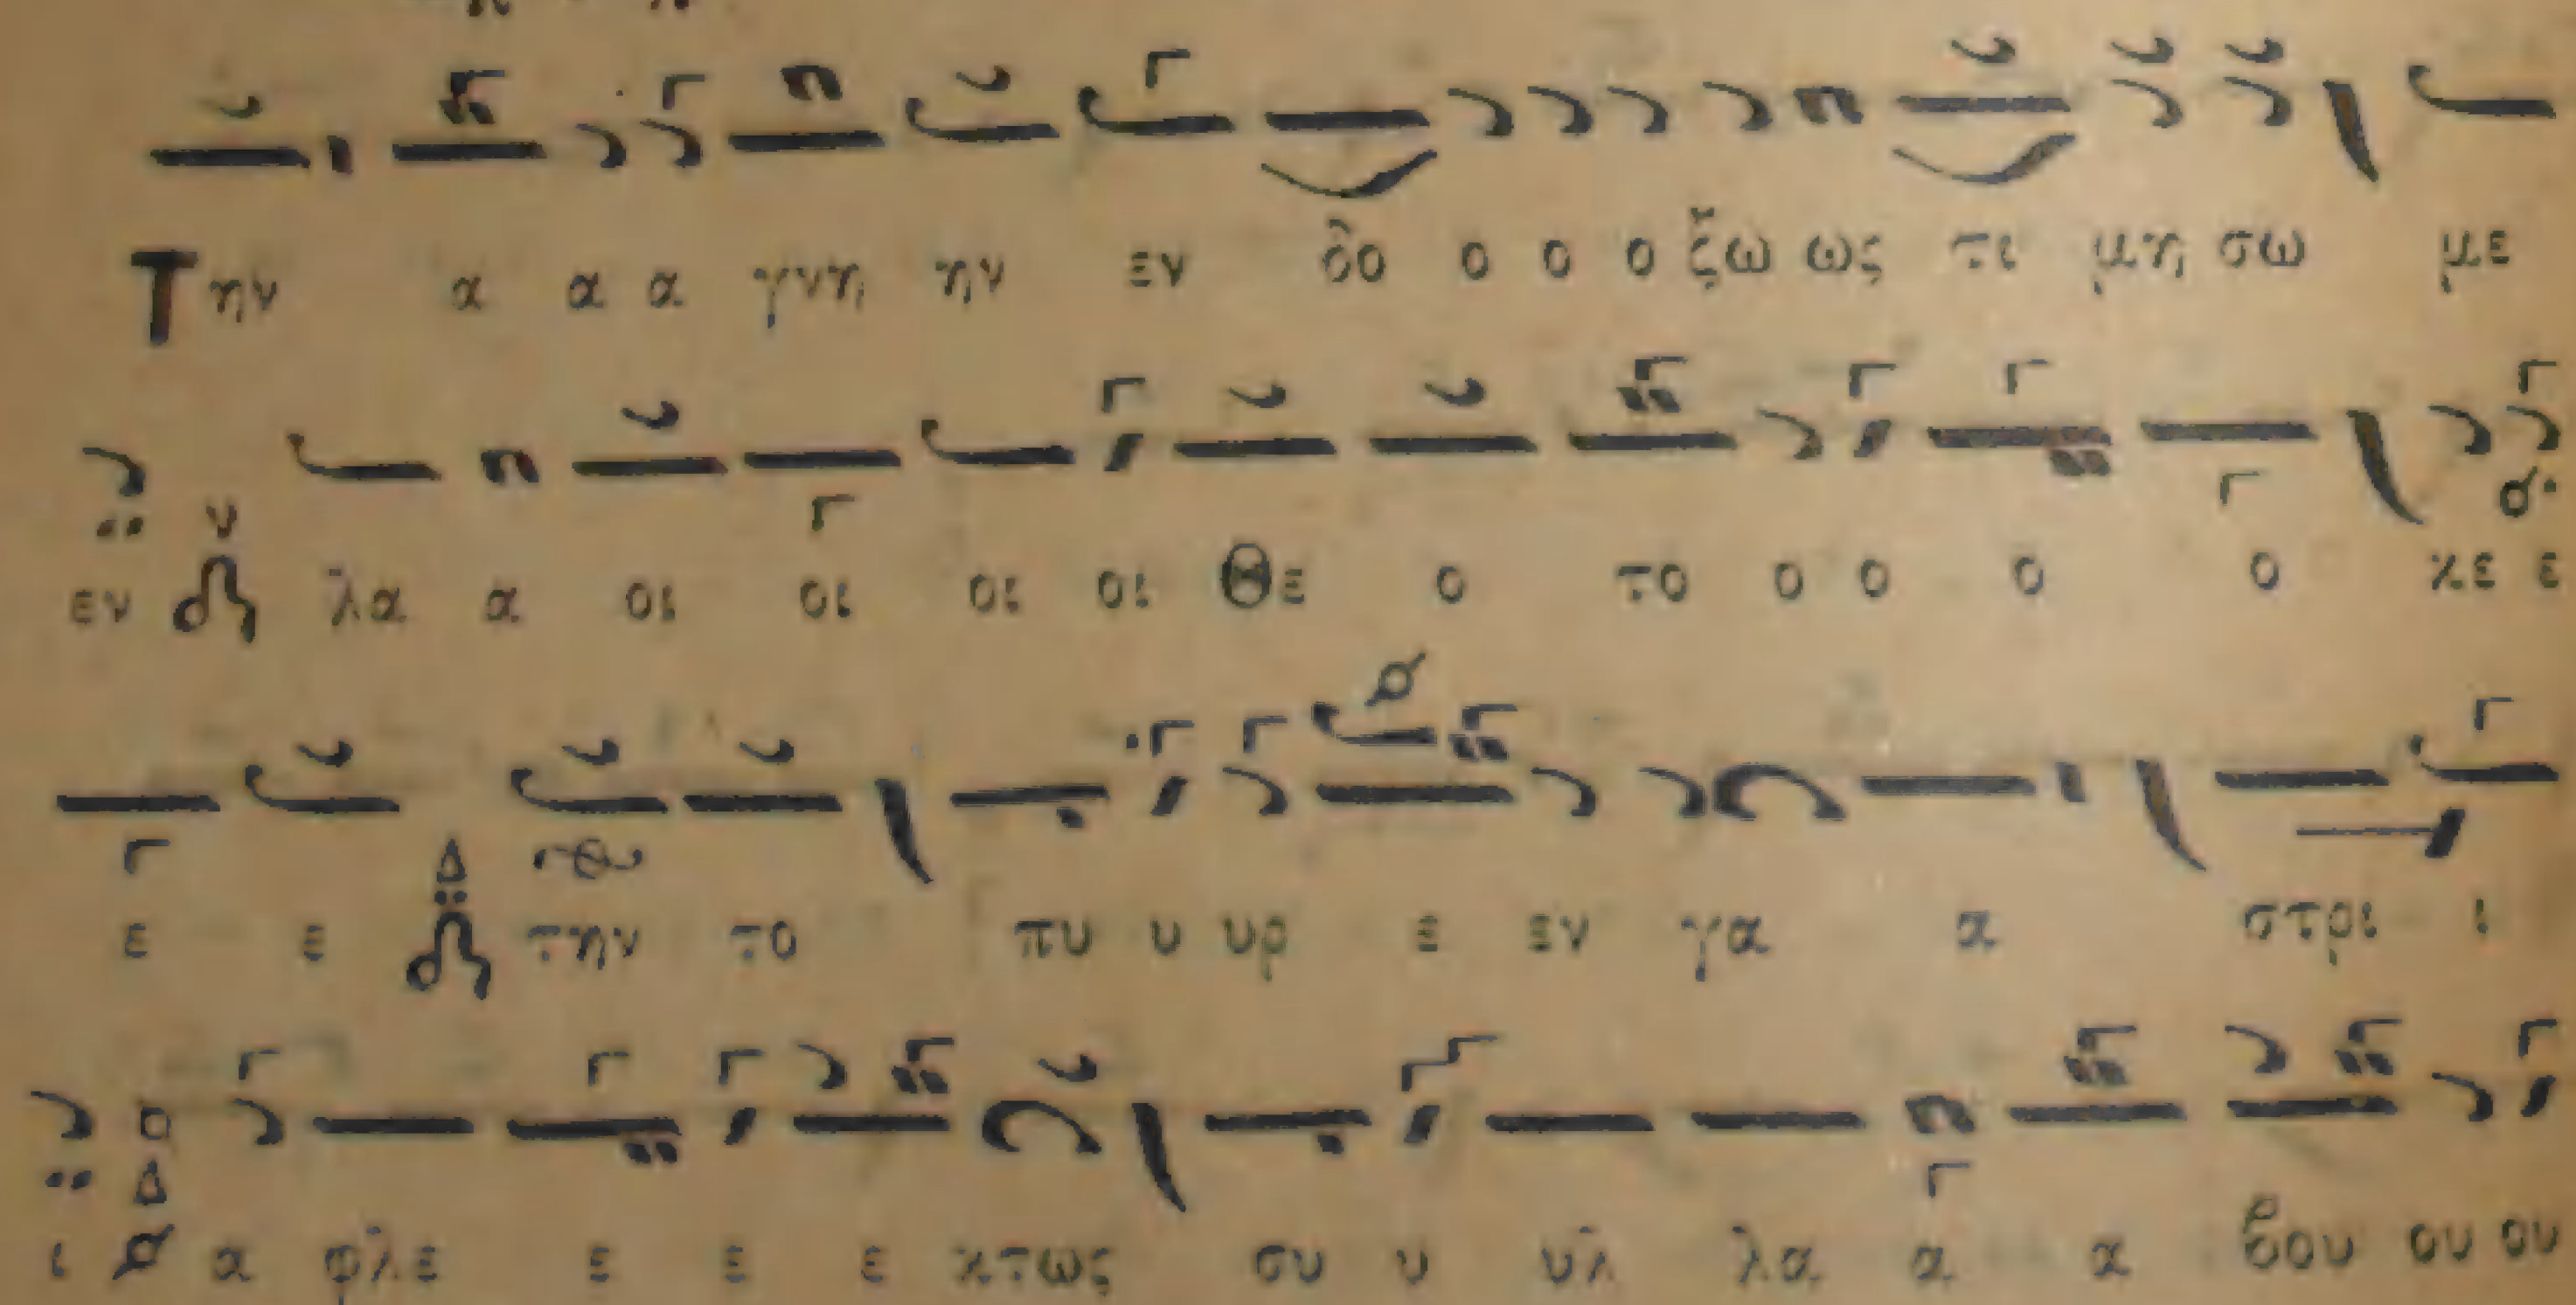 Την α α α γνη ην εν δο ο ο ο ξω ως τι μη σω με
εν λα α οι οι οι οι Θε ο το ο ο ο ο κε ε
ε ε Δ την το πυ υ υρ ε εν γα α στρι ι
ι α φλε ε ε ε κτως συ υ υλ λα α α βου ου ου